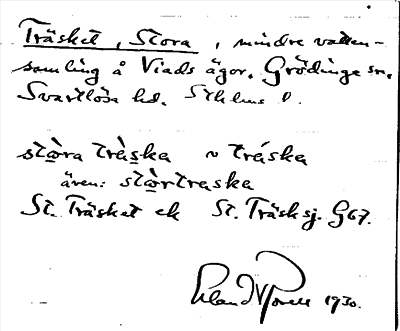 Träsket, Stora, mindre vatten-
samling å Viads ägor. Grödinge sn.
Svartlösa hd. Sthlms l.
stòra trä̀ska ~ trä́ska
även: stòrtraska
St. Träsket ek St. Träsksj. G67.
1930.